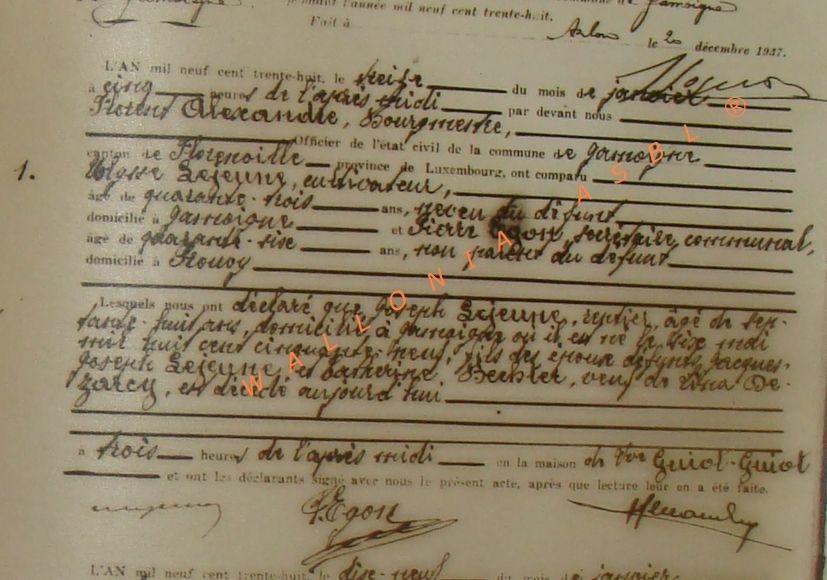 pendant l'année mil neuf cent trente-huit.
Fait à Arlon le 20 décembre 1937.
L'AN mil neuf cent trente-huit, le treize du mois de janvier
à cinq heures de l'après midi par devant nous
Florent Alexandre, Bourgmestre,
Officier de l'état civil de la commune de Jamoigne
canton de Florenville province de Luxembourg, ont comparu
1.
Ulysse Lejeune, cultivateur,
âgé de quarante-trois ans, neveu du défunt
domicilié à Jamoigne et Pierre Egon, secrétaire communal,
âgé de quarante-six ans, non parent du défunt
domicilié à
Lesquels nous ont déclaré que Joseph Lejeune, rentier, âgé de sep-
tante-huit ans, domicilié à Jamoigne où il est né le six mai
mil huit cent cinquante-neuf, fils des époux défunts Jacques-
Joseph Lejeune et Catherine veuf de De-
est décédé aujourd'hui
à trois heures de l'après midi en la maison de Vve Guiot-Guiot
et ont les déclarants signé avec nous le présent acte, après que lecture leur en a été faite.
P. Egon
L'AN mil neuf cent trente-huit, le dix-neuf du mois de janvier
WALLONIA ASBL ®